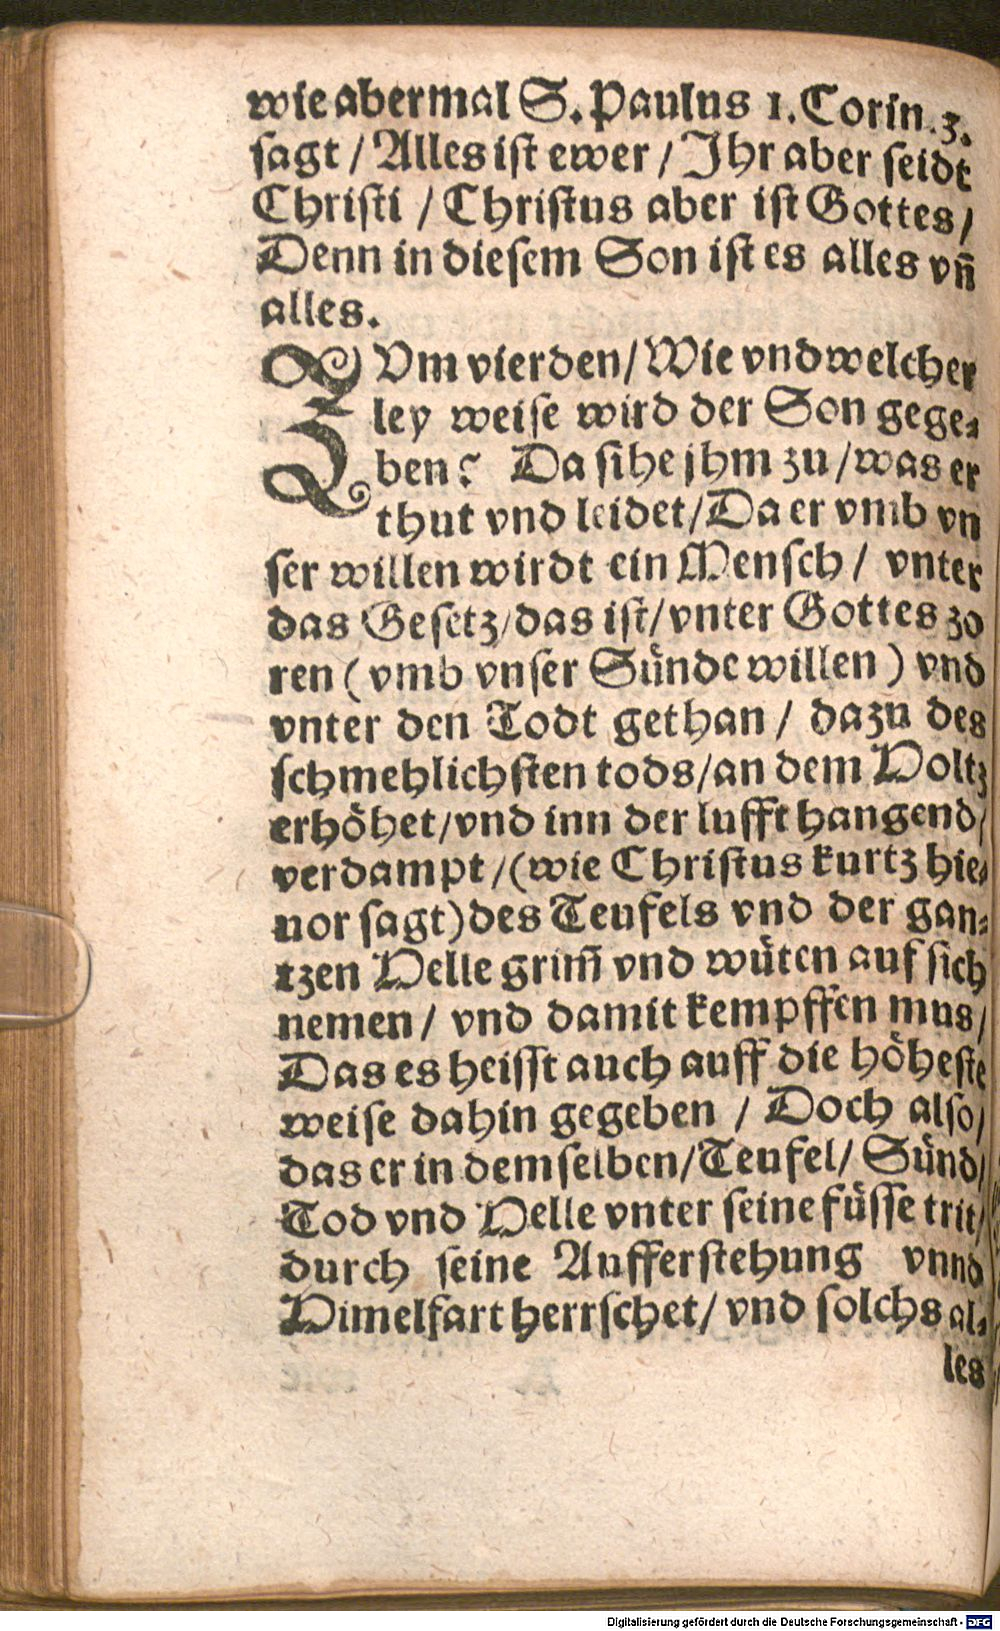 wie abermal S. Paulus 1. Corin. 3.
sagt / Alles ist ewer / Ihr aber seidt
Christi / Christus aber ist Gottes /
Denn in diesem Son ist es alles vn̄
alles.
ZVm vierden / Wie vnd welcher
ley weise wird der Son gege-
ben? Da sihe jhm zu / was er
thut vnd leidet / Da er vmb vn
ser willen wirdt ein Mensch / vnter
das Gesetz / das ist / vnter Gottes zo
ren (vmb vnser Sünde willen) vnd
vnter den Todt gethan / dazu des
schmehlichsten tods / an dem Holtz
erhöhet / vnd inn der lufft hangend /
verdampt / (wie Christus kurtz hie-
uor sagt) des Teufels vnd der gan-
tzen Helle grim̄ vnd wüten auf sich
nemen / vnd damit kempffen mus /
Das es heisst auch auff die höheste
weise dahin gegeben / Doch also /
das er in demselben / Teufel / Sünd /
Tod vnd Helle vnter seine füsse trit /
durch seine Aufferstehung vnnd
Himelfart herrschet / vnd solchs al-
les
Digitalisierung gefördert durch die Deutsche Forschungsgemeinschaft - DFG